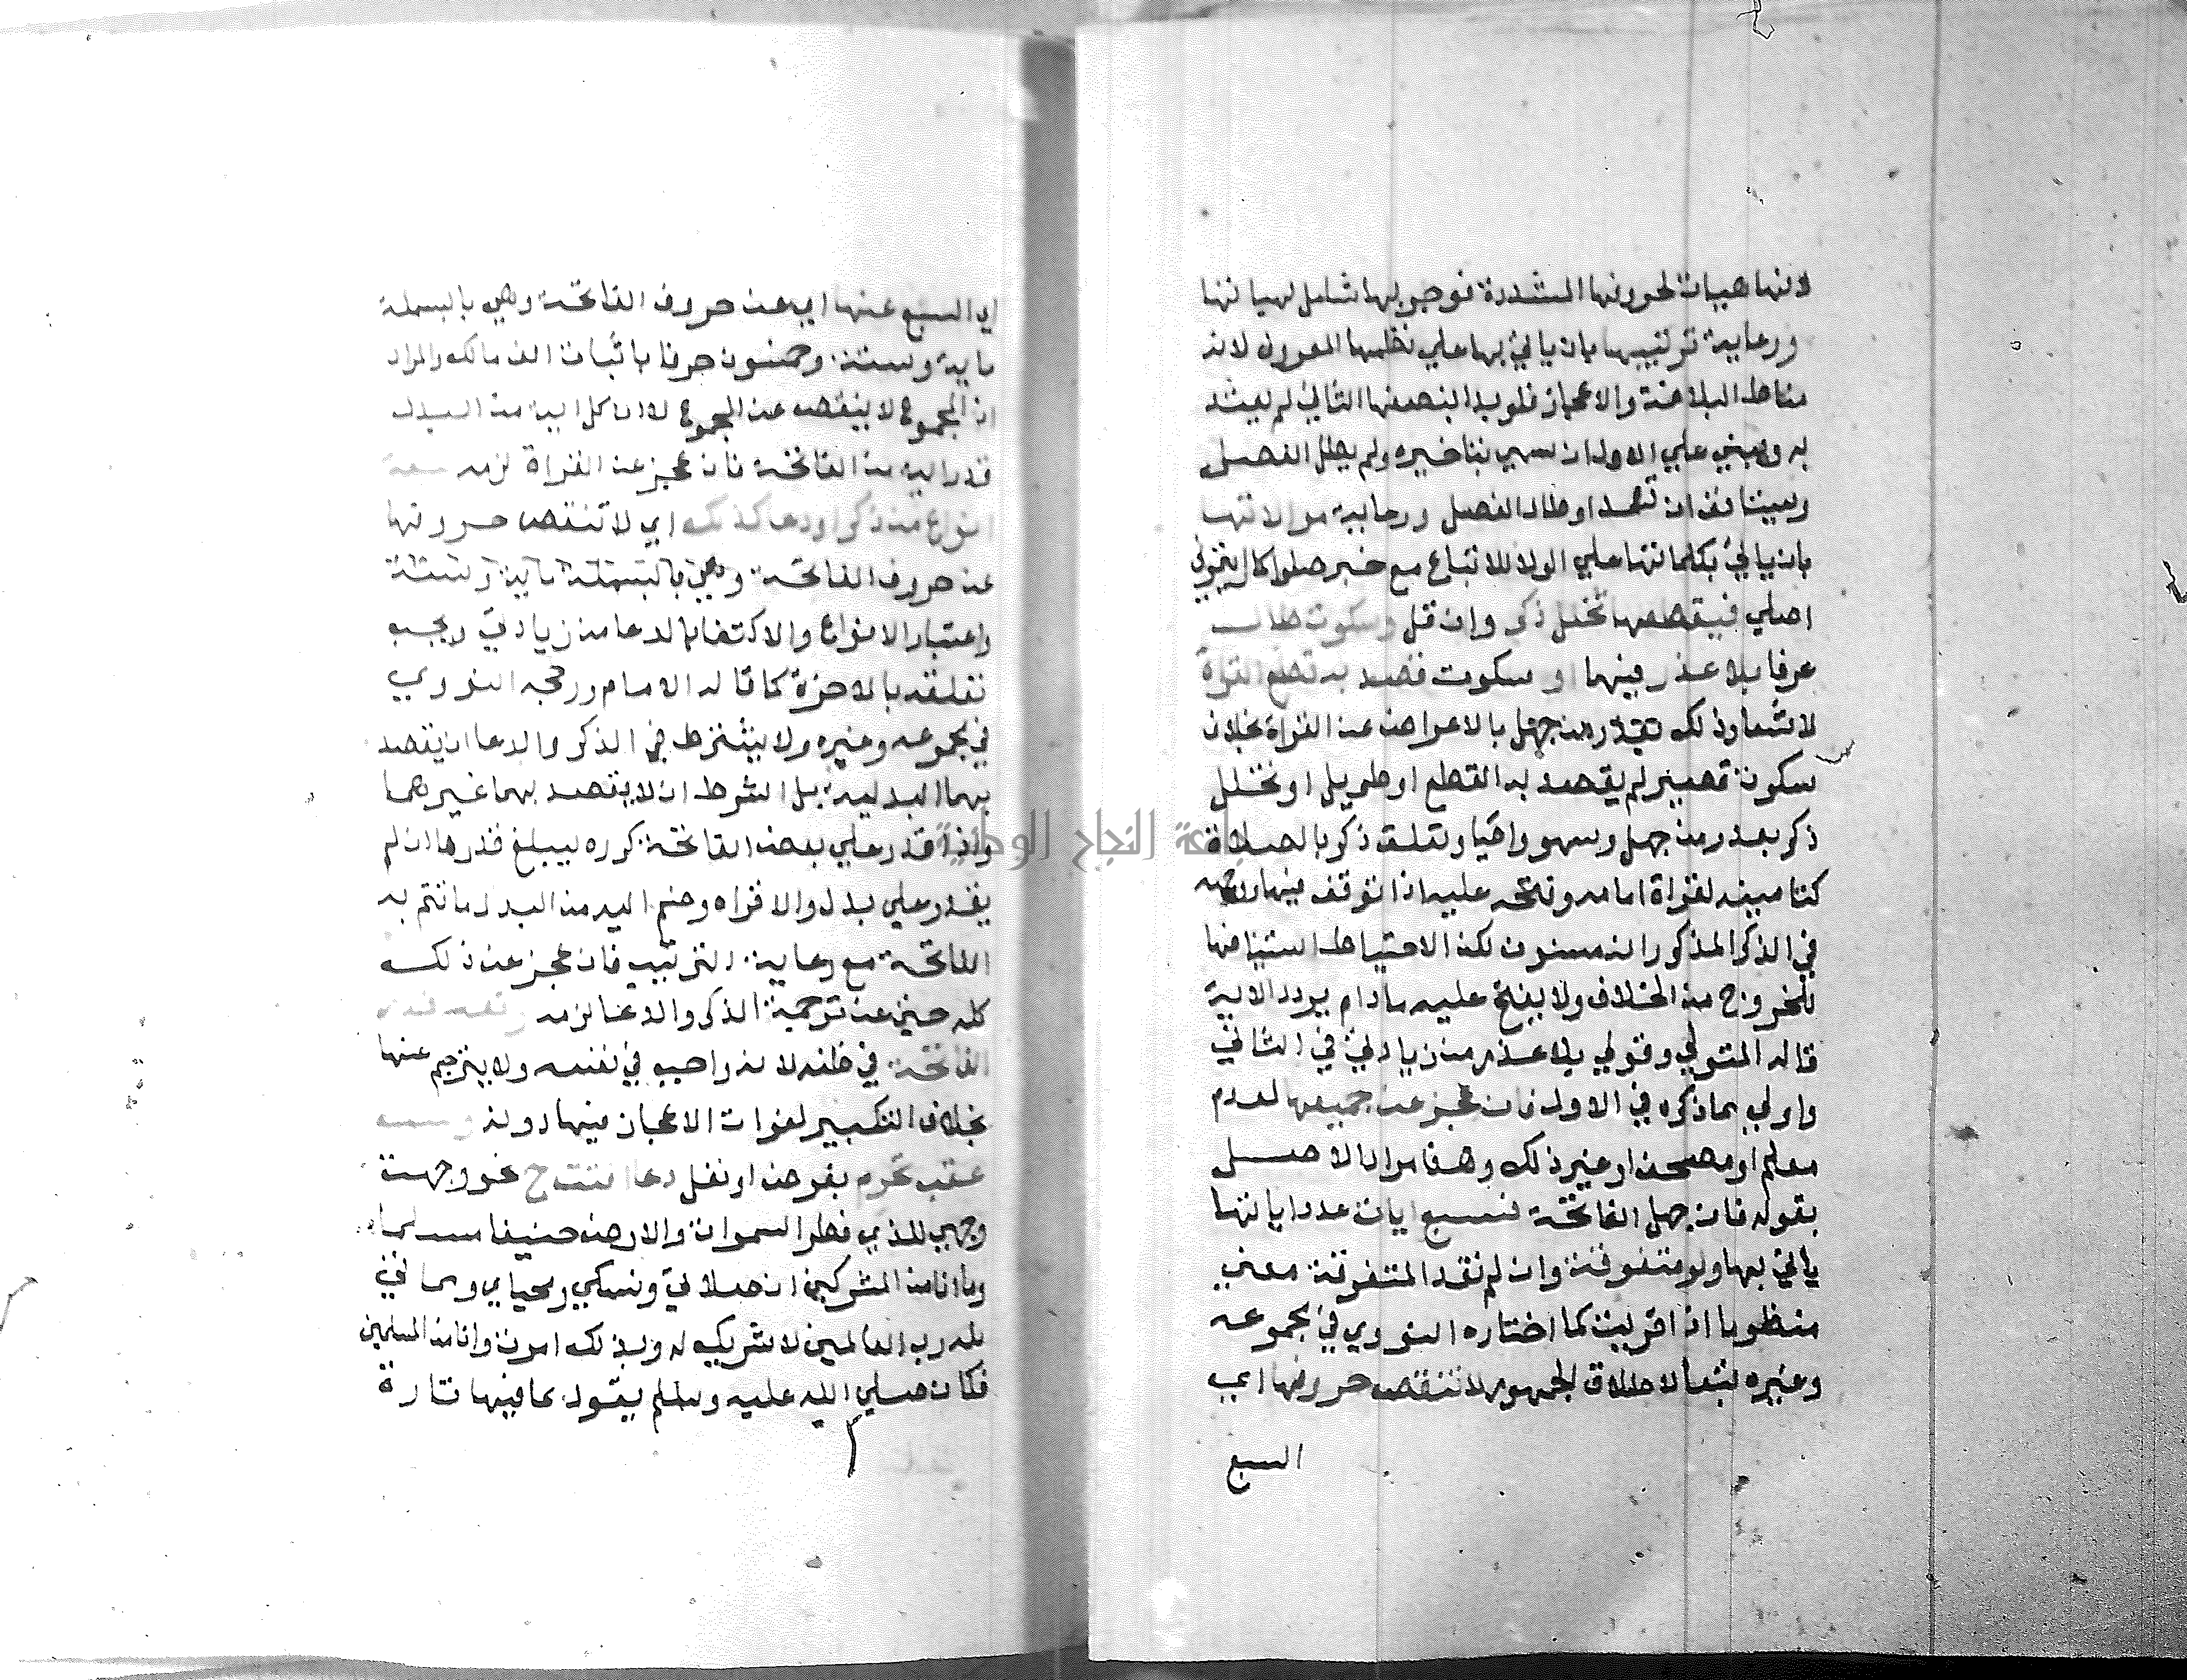 لانها هيات لحروفها المشددة فوجوبها شامل لهياتها
ورعاية ترتيبها بان ياتي بها علي نظمها المعروف لانه
مناط البلاغة والاعجاز فلو بدا بنصفها الثاني لم يعتد
به ويبني علي الاول ان سهي بتاخيره ولم يطل الفصل
ويستانف ان تعمد او طال الفصل ورعاية موالاتها
بان ياتي بكلماتها علي الولا للاتباع مع خبر صلوا كما رايتموني
اصلي فيقطعها تخلل ذكر وان قل وسكوت طال
عرفا بلا عذر فيهما او سكوت قصد به قطع القراة
لاشعار ذلك بالاعراض عن القراة بخلاف
سكوت قصير لم يقصد به القطع او طويل او تخلل
ذكر بعذر من جهل وسهو واعيا وتعلق ذكر بالصلاة
كتامينه لقراة امامه وفتحه عليه اذا توقف فيها ووجهه
في الذكر المذكور انه مسنون لكن الاحتياط استينافها
للخروج من الخلاف ولا يفتح عليه مادام يردد الاية
قاله المتولي وقولي بلا عذر من زيادتي في الثاني
واولي مما ذكره في الاول فان عجز عن جميعها لعدم
معلم او مصحف او غير ذلك وهذا مراد الاصل
بقوله فان جهل الفاتحة فسبع ايات عدد اياتها
ياتي بها ولو متفرقة وان لم تفد المتفرقة معني
منظوما اذا قريت كما اختاره النووي في مجموعه
وغيره تبعا لاطلاق الجمهور لا تنقص حروفها اي
السبع
اي السبع عنها اي عن حروف الفاتحة وهي بالبسملة
ماية وستة وخمسون حرفا باثبات الف مالك والمراد
ان المجموع لا ينقص عن المجموع لا ان كل اية من البدل
قدر اية من الفاتحة فان عجز عن القراة لزمه سبعة
انواع من ذكر او دعا كذلك اي لا تنقص حروفها
عن حروف الفاتحة وهي بالبسملة ماية وستة
واعتبار الانواع والاكتفا بالدعا من زيادتي ويجب
تعلقه بالاخرة كما قاله الامام ورجحه النووي
في مجموعه وغيره ولا يشترط في الذكر والدعا ان يقصد
بهما البدلية بل الشرط ان لا يقصد بهما غيرهما
واذا قدر علي بعض الفاتحة كرره ليبلغ قدرها ان لم
يقدر علي بدل والا قراه وضم اليه من البدل ما تتم به
الفاتحة مع رعاية الترتيب فان عجز عن ذلك
كله حتي عن ترجمة الذكر والدعا لزمه وقفة قدر
الفاتحة في ظنه لانه واجب في نفسه ولا يترجم عنها
بخلاف التكبير لفوات الاعجاز فيها دونه وسن
عقب تحرم بفرض او نفل دعا افتتاح نحو وجهت
وجهي للذي فطر السموات والارض حنيفا مسلما
وما انا من المشركين ان صلاتي ونسكي ومحياي ومماتي
لله رب العالمين لا شريك له وبذلك امرت وانا من المسلمين
فكان صلي الله عليه وسلم يقول بما فيها تارة
جامعة النجاح الوطنية